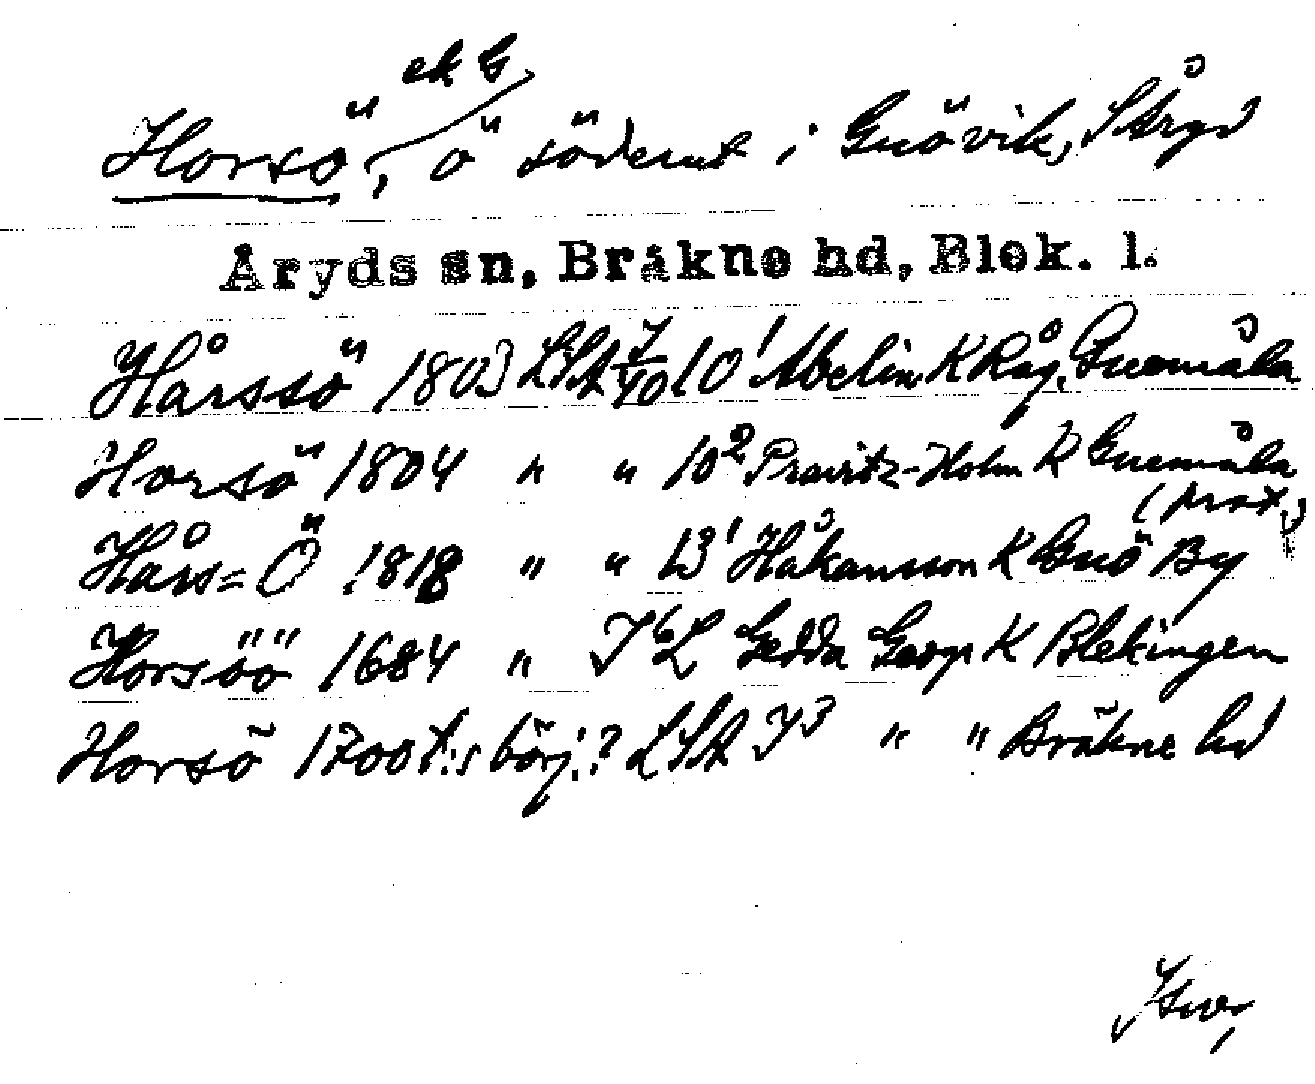 ek G
Horsö, ö söderut i Guövik, S Åryd
Åryds sn, Bräkne hd, Blek. l.
Hårssö 1803 LSA 7/40 10¹ Abelin K Råg, Guemåla
Horsö 1804 " " 10² Pravitz-Holm K Guemåla
(prot.)
Hårs=Ö 1818 " " 13¹ Håkansson K Guö By
Horsöö 1684 " Y⁶L Gedda Geogr K Blekingen
Horsö 1700 t:s börj.? LSA Y³ " " Bräkne hd